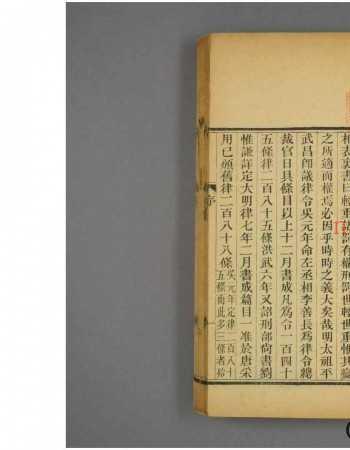 之所適而權焉必因乎時時之義大矣哉明太祖平
武昌卽議律令吳元年命左丞相李善長爲律令總
裁官日具條目以上十二月書成凡爲令一百四十
五條律二百八十五條洪武六年又詔刑部尚書劉
惟謙詳定大明律七年二月書成篇目一準於唐采
用已頒舊律二百八十八條
吳元年定律二百八十
五條而此多三條者
序